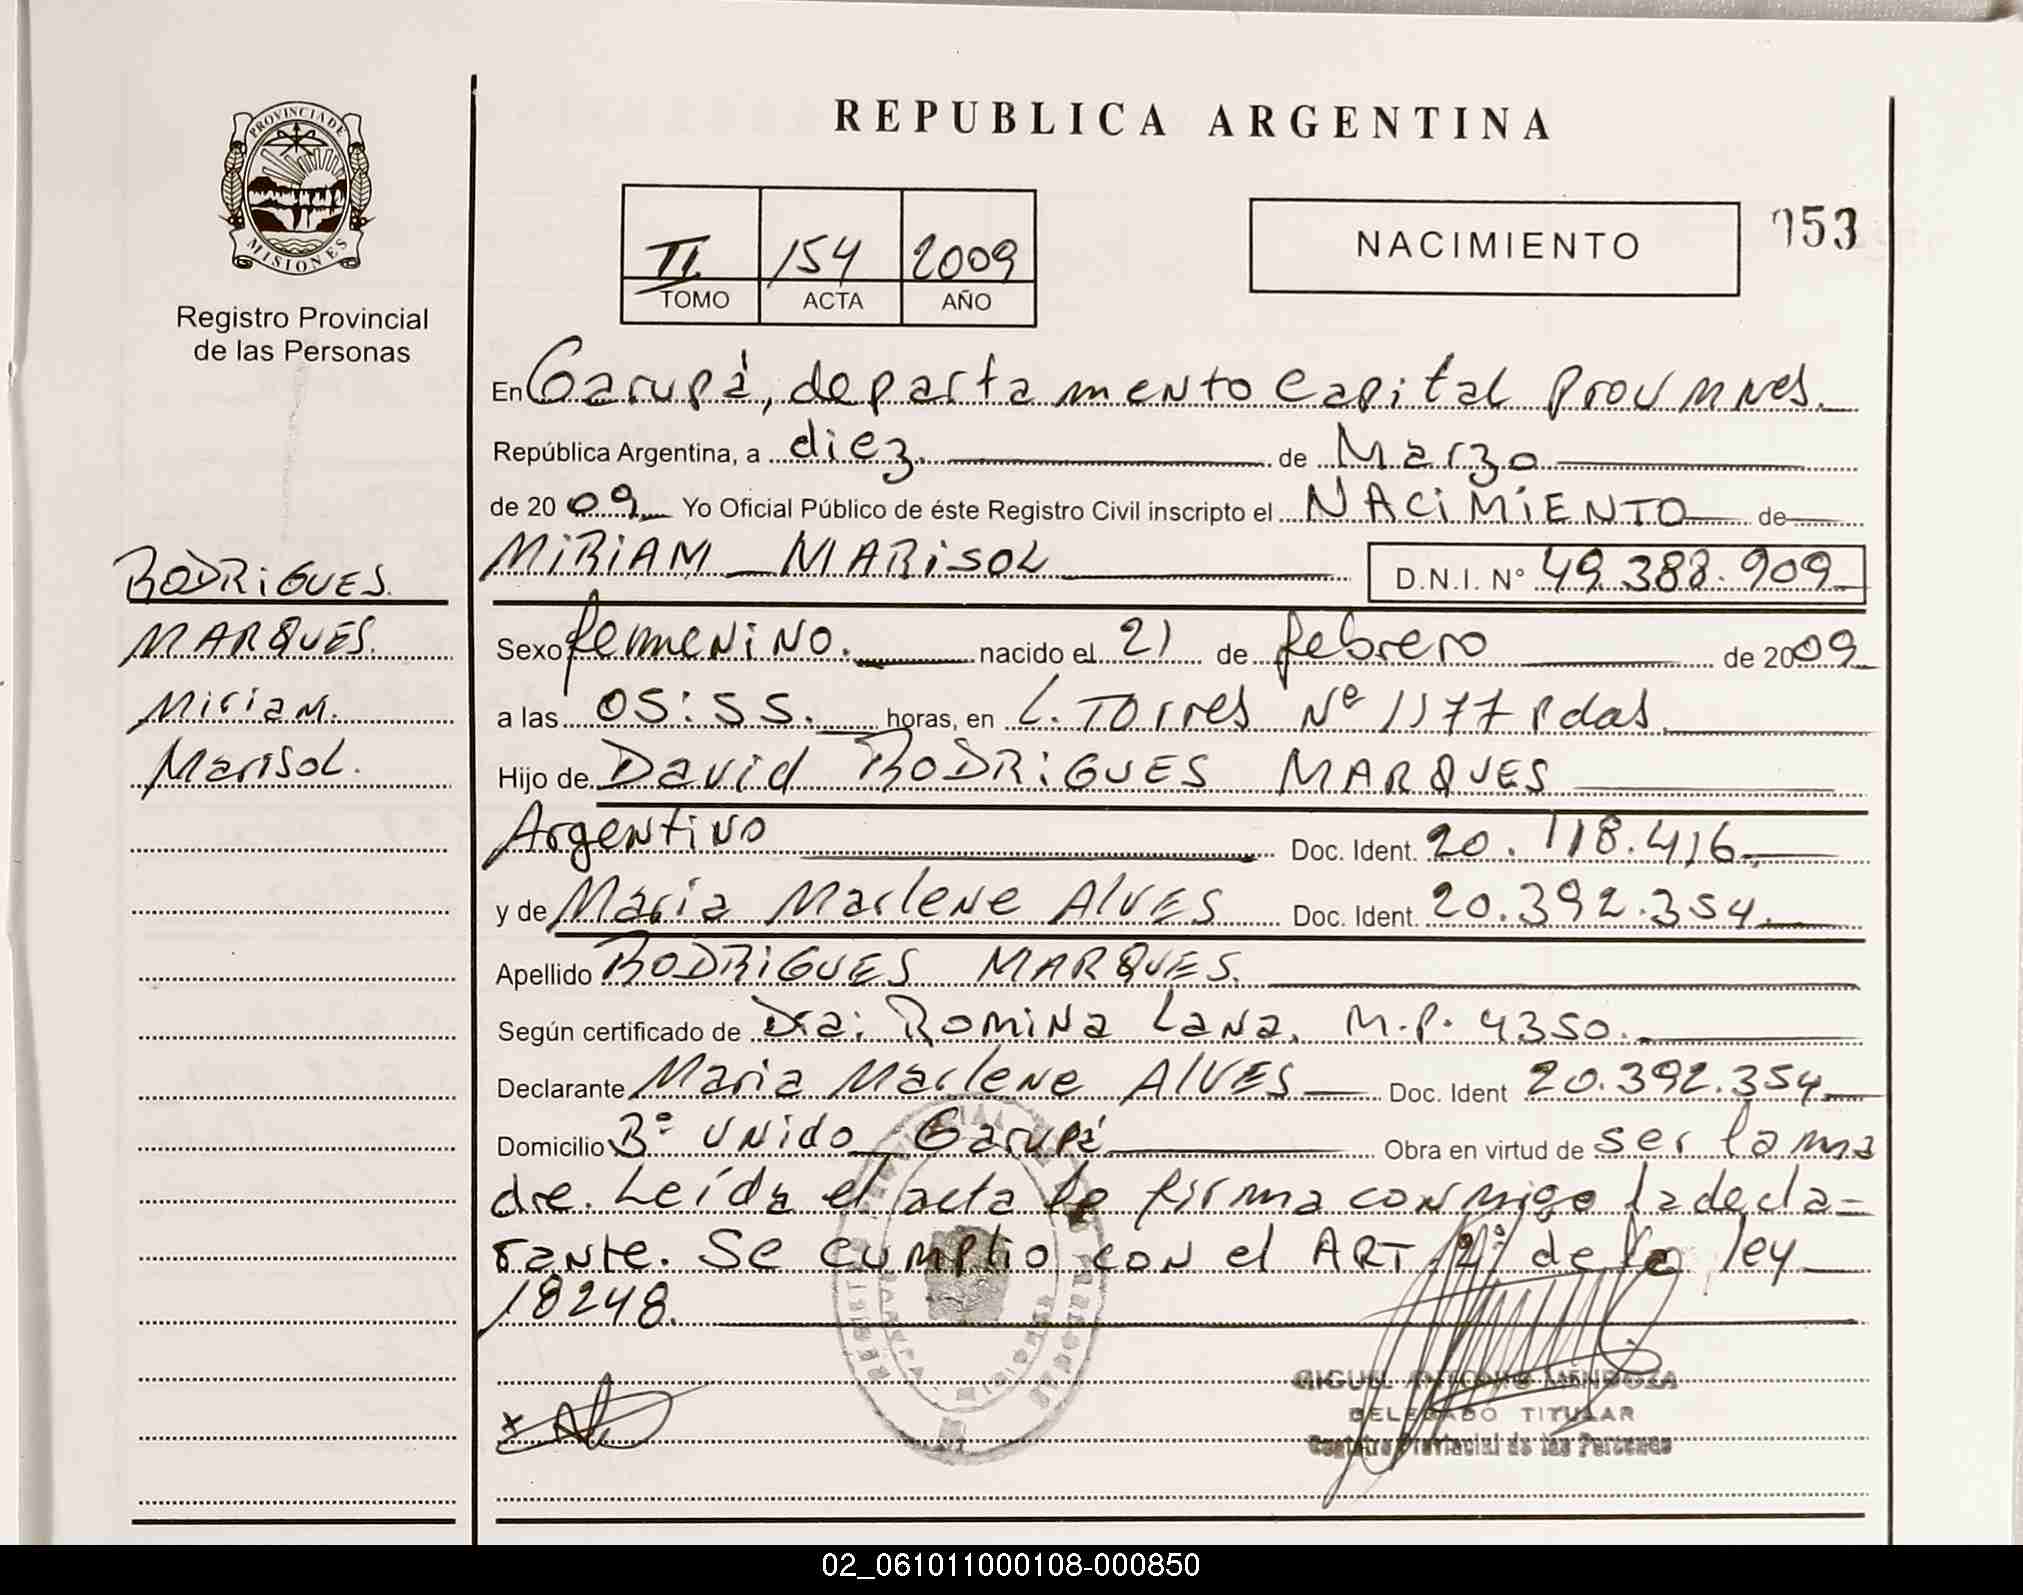 REPUBLICA ARGENTINA
PROVINCIA DE
MISIONES
Registro Provincial
de las Personas
II 154 2009
TOMO ACTA AÑO
NACIMIENTO
153
En Garupá, departamento Capital Prov Mnes.
República Argentina, a diez. de Marzo
de 2009 Yo Oficial Público de éste Registro Civil inscripto el NACIMIENTO de
MIRIAM MARISOL D.N.I. N° 49.388.909
RODRIGUES
MARQUES.
Miriam.
Marisol.
Sexo femenino. nacido el 21 de febrero de 2009
a las 05:55. horas, en L. Torres Nº 1177 Pdas.
Hijo de David RODRIGUES MARQUES
Argentino Doc. Ident. 20.118.416
y de Maria Marlene ALVES Doc. Ident. 20.392.354
Apellido RODRIGUES MARQUES.
Según certificado de Dra: Romina Lana. M.P. 4350.
Declarante Maria Marlene ALVES Doc. Ident 20.392.354
Domicilio Bº Unido Garupá Obra en virtud de ser la ma
dre. Leída el acta la firma conmigo la decla=
rante. Se cumplio con el ART 2º de la ley
18248.
MIGUEL ANTONIO MENDOZA
DELEGADO TITULAR
Registro Provincial de las Personas
02_061011000108-000850